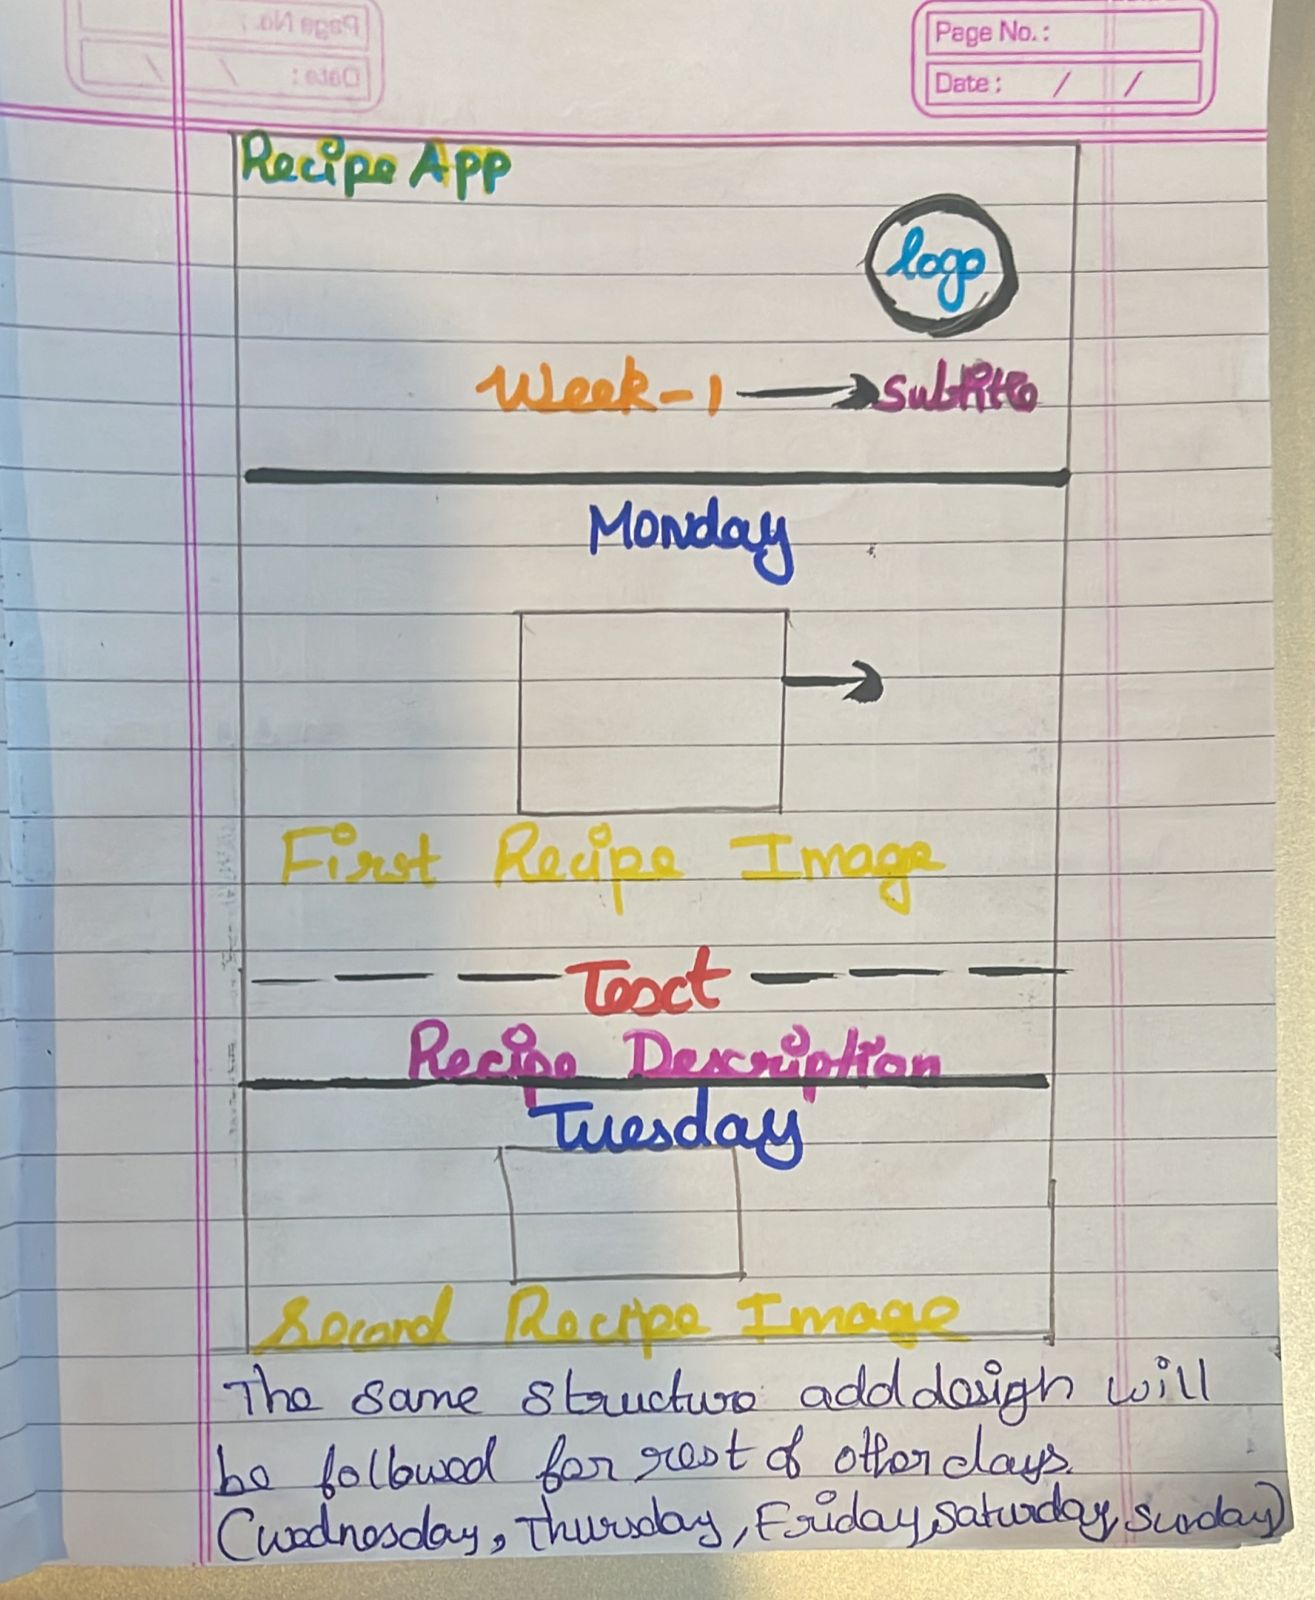 Page No. :
Date : / /
Recipe App
logo
Week-1 → Subtitle
Monday
First Recipe Image
Text
Recipe Description
Tuesday
Second Recipe Image
The same structure add design will
be followed for rest of other days.
(wednesday, Thursday, Friday, saturday, sunday)